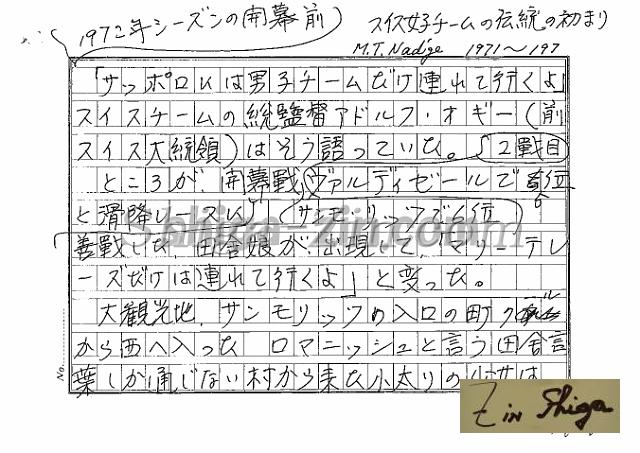 1972年シーズンの開幕前)
スイス女子チームの伝統の初まり
M.T. Nadige 1971〜197
「サッポロへは男子チームだけ連れて行くよ」
スイスチームの総監督アドルフ・オギー(前
スイス大統領)はそう語っていた。「2戦目
ところが、開幕戦(ヴァルディゼールで6位
と滑降レースに、(サンモリッツで2位)
善戦した、田舎娘が、出現して、「マリーテレ
ーズだけは連れて行くよ」と変った。
大観光地、サンモリッツの入口の町
から西へ入った ロマニッシュと言う田舎言
葉しか通じない村から来た小太りの
Shiga-zin.com
No.
Z in Shiga